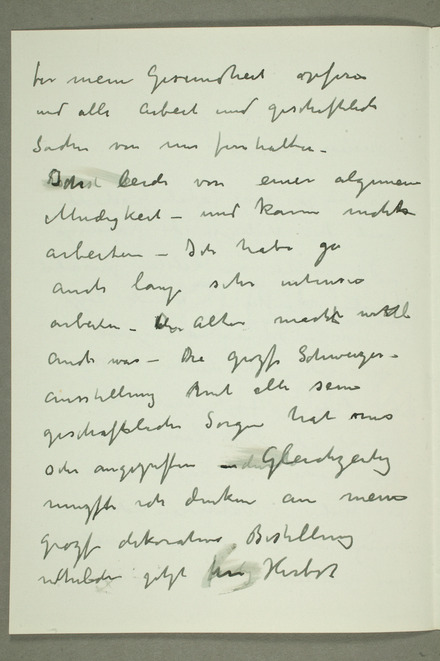 für meine Gesundheit opfern
und alle Arbeit und geschäftliche
Sachen von mir fernhalten –
Ich leide von einer algemeinen
Mudigkeit – und kann nichts
arbeiten – Ich habe ja
auch lange sehr intensiv
arbeiten – Das Alter macht wohl
auch was – Die grozse Schweizer-
ausstellung mit alle seine
geschäftliche Sorgen hat mir
sehr angegriffen – Gleichzeitig
muszte ich denken an meine
grozse dekorative Bestellung
jetzt Herbst